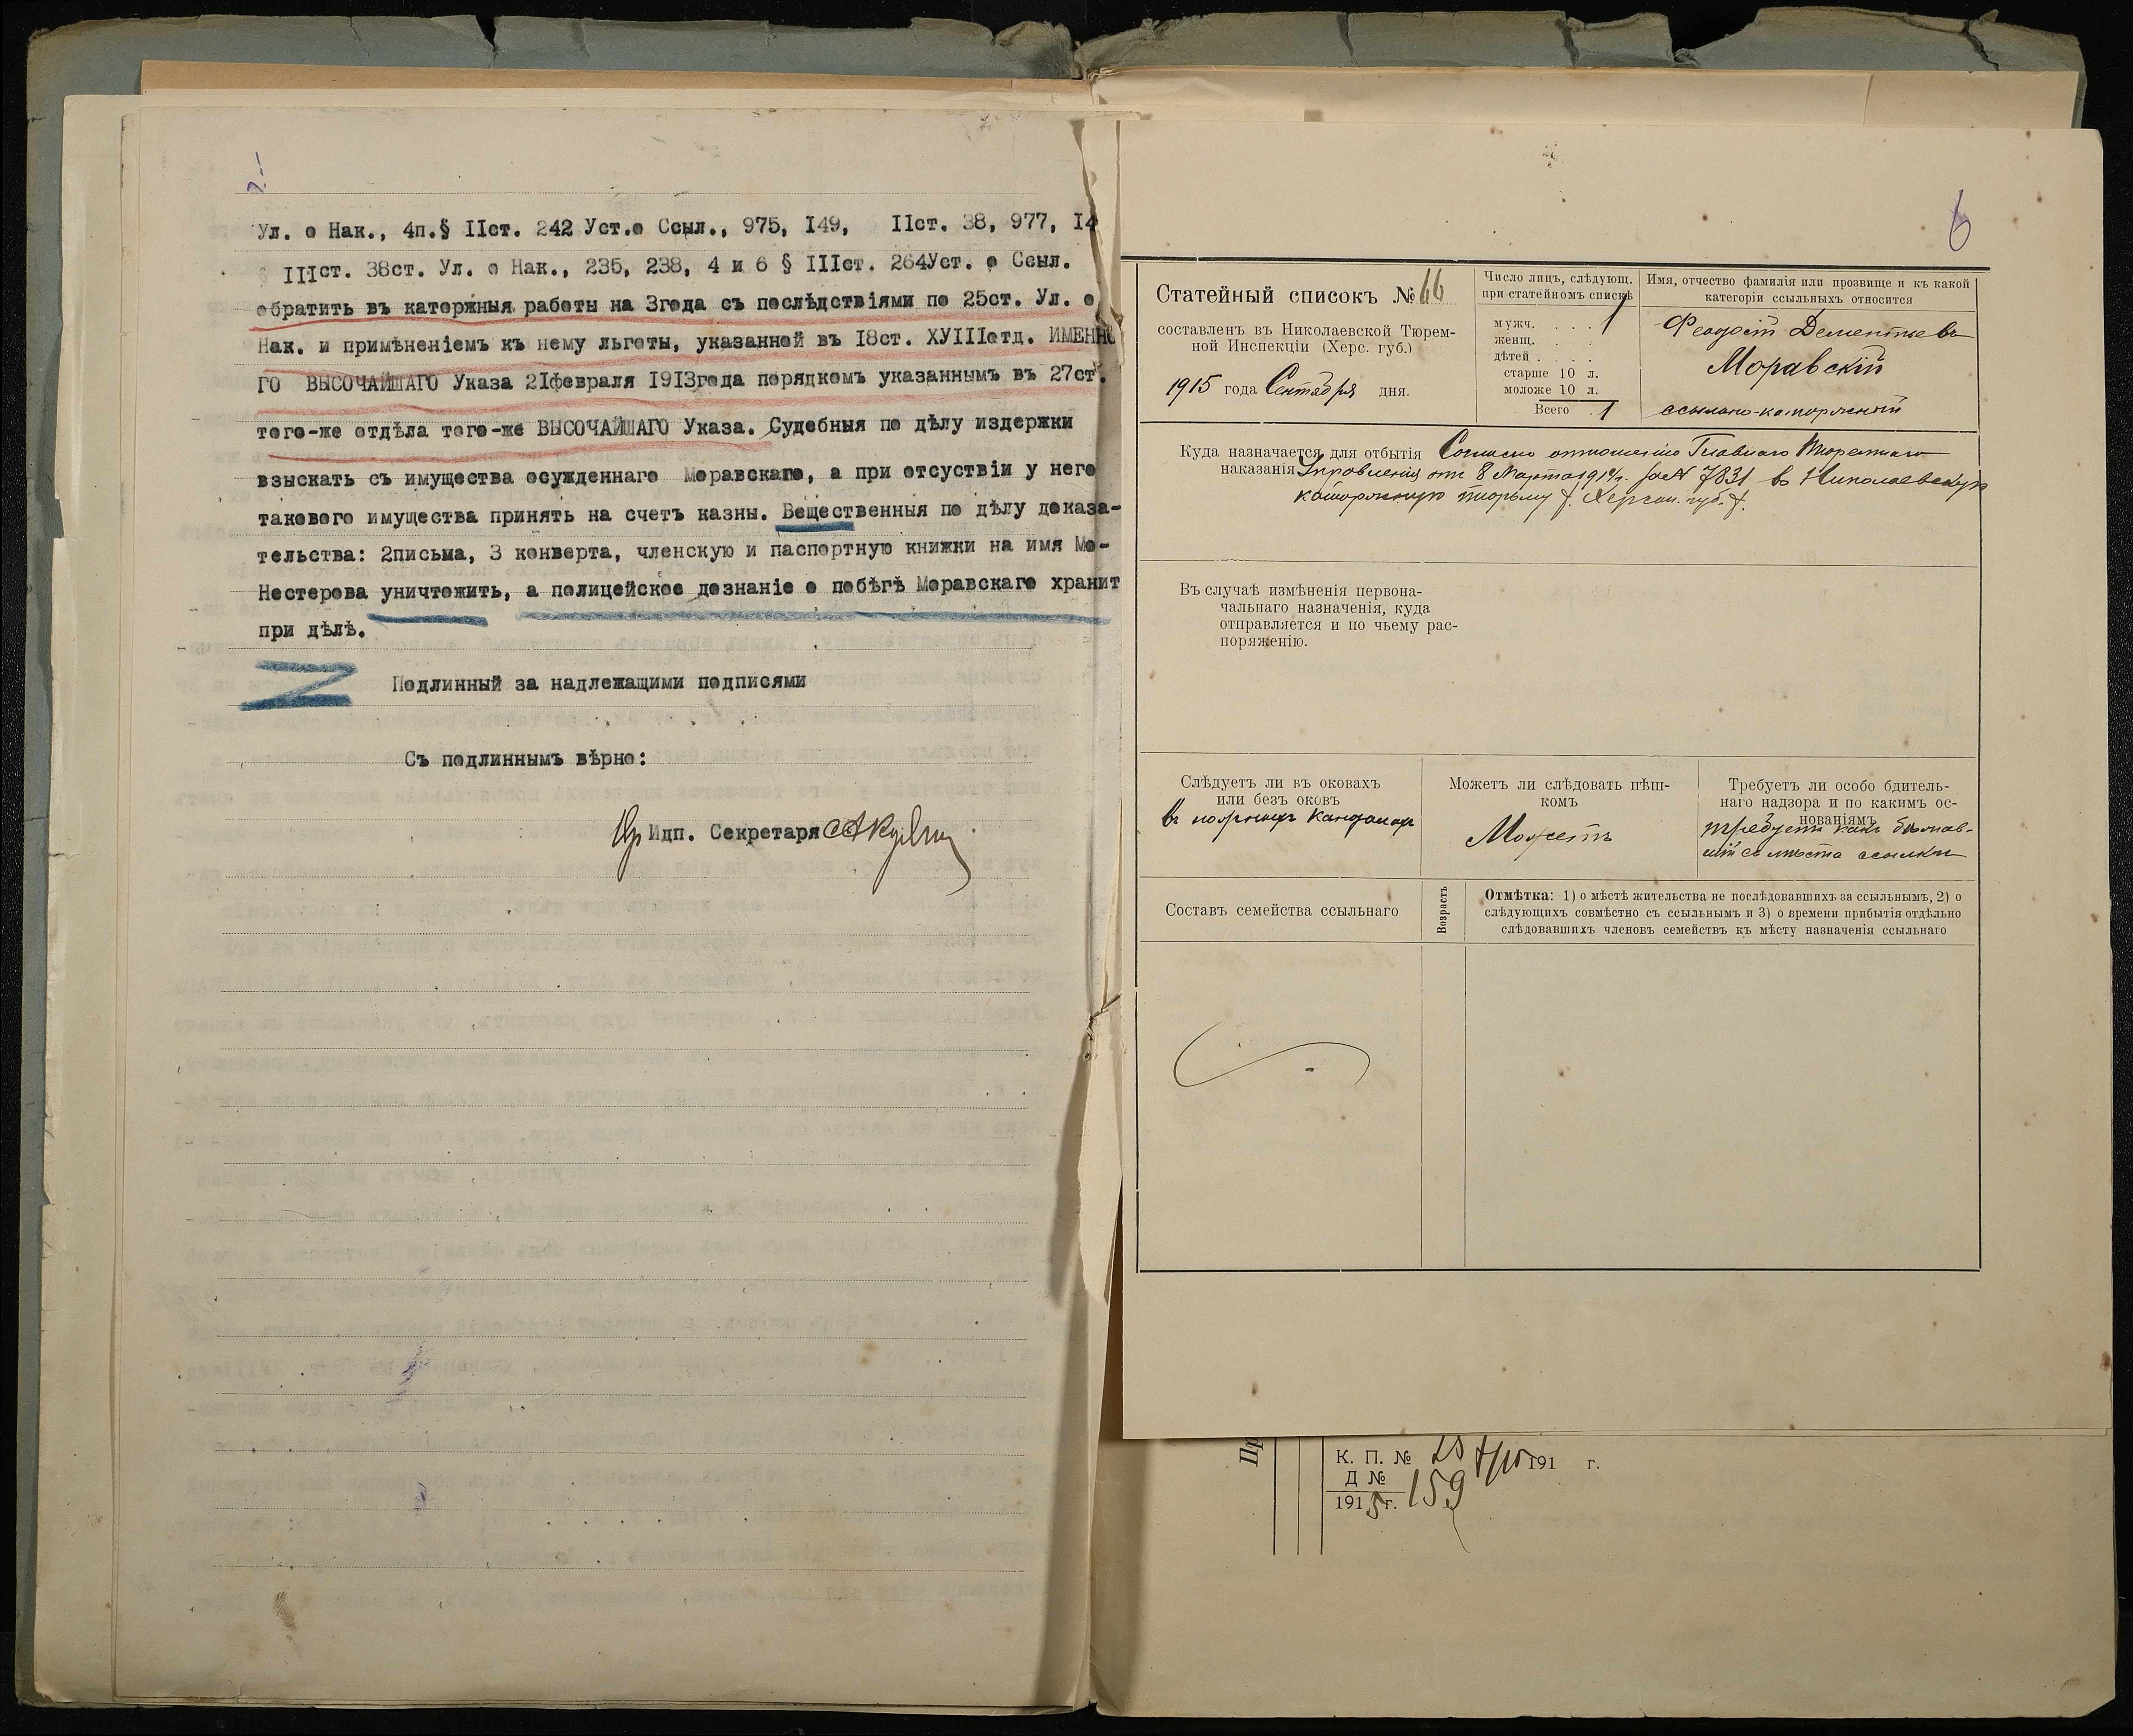 2-
Ул. о Нак., 4п.§ IIст. 242 Уст.о Ссыл., 975, I49, IIст. 38, 977, I4
§ IIIст. 38ст. Ул. о Нак., 235, 238, 4 и 6 § IIIст. 264Уст. о Ссыл.
обратить въ каторжныя работы на 3года съ послѣдствіями по 25ст. Ул. о
Нак. и примѣненіемъ къ нему льготы, указанной въ I8ст. ХУIIIотд. ИМЕННО
ГО ВЫСОЧАЙШАГО Указа 2Iфевраля I9I3года порядкомъ указаннымъ въ 27ст.
того-же отдѣла того-же ВЫСОЧАЙШАГО Указа. Судебныя по дѣлу издержки
взыскать съ имущества осужденнаго Моравскаго, а при отсуствіи у него
такового имущества принять на счетъ казны. Вещественныя по дѣлу доказа-
тельства: 2письма, 3 конверта, членскую и паспортную книжки на имя Мо-
Нестерова уничтожить, а полицейское дознаніе о побѣгѣ Моравскаго хранит
при дѣлѣ.
Подлинный за надлежащими подписями
Съ подлиннымъ вѣрно:
И.п. Секретаря
6
Статейный списокъ № 66
составленъ въ Николаевской Тюрем-
ной Инспекціи (Херс. губ.)
1915 года Сентября дня.
Число лицъ, слѣдующ.
при статейномъ спискѣ
мужч. . . . 1
женщ. . .
дѣтей . . . .
старше 10 л.
моложе 10 л.
Всего . 1
Имя, отчество фамилія или прозвище и къ какой
категоріи ссыльныхъ относится
Феодосій Дементьевъ
Моравскій
ссыльно-каторжный
Куда назначается для отбытія
наказанія
Согласно отношенію Главнаго Тюремнаго
Управленія отъ 8 Марта 1914 г. за № 7831 въ Николаевскую
каторжную тюрьму Херсон. губ.
Въ случаѣ измѣненія первона-
чальнаго назначенія, куда
отправляется и по чьему рас-
поряженію.
Слѣдуетъ ли въ оковахъ
или безъ оковъ
въ ножныхъ кандалахъ
Можетъ ли слѣдовать пѣш-
комъ
Можетъ
Требуетъ ли особо бдитель-
наго надзора и по какимъ ос-
нованіямъ
требуетъ какъ бѣжав-
шій съ мѣста ссылки
Составъ семейства ссыльнаго
Возрастъ
Отмѣтка: 1) о мѣстѣ жительства не послѣдовавшихъ за ссыльнымъ, 2) о
слѣдующихъ совмѣстно съ ссыльнымъ и 3) о времени прибытія отдѣльно
слѣдовавшихъ членовъ семействъ къ мѣсту назначенія ссыльнаго
Пр
К. П. № 191 г.
Д № 159
1915 г.